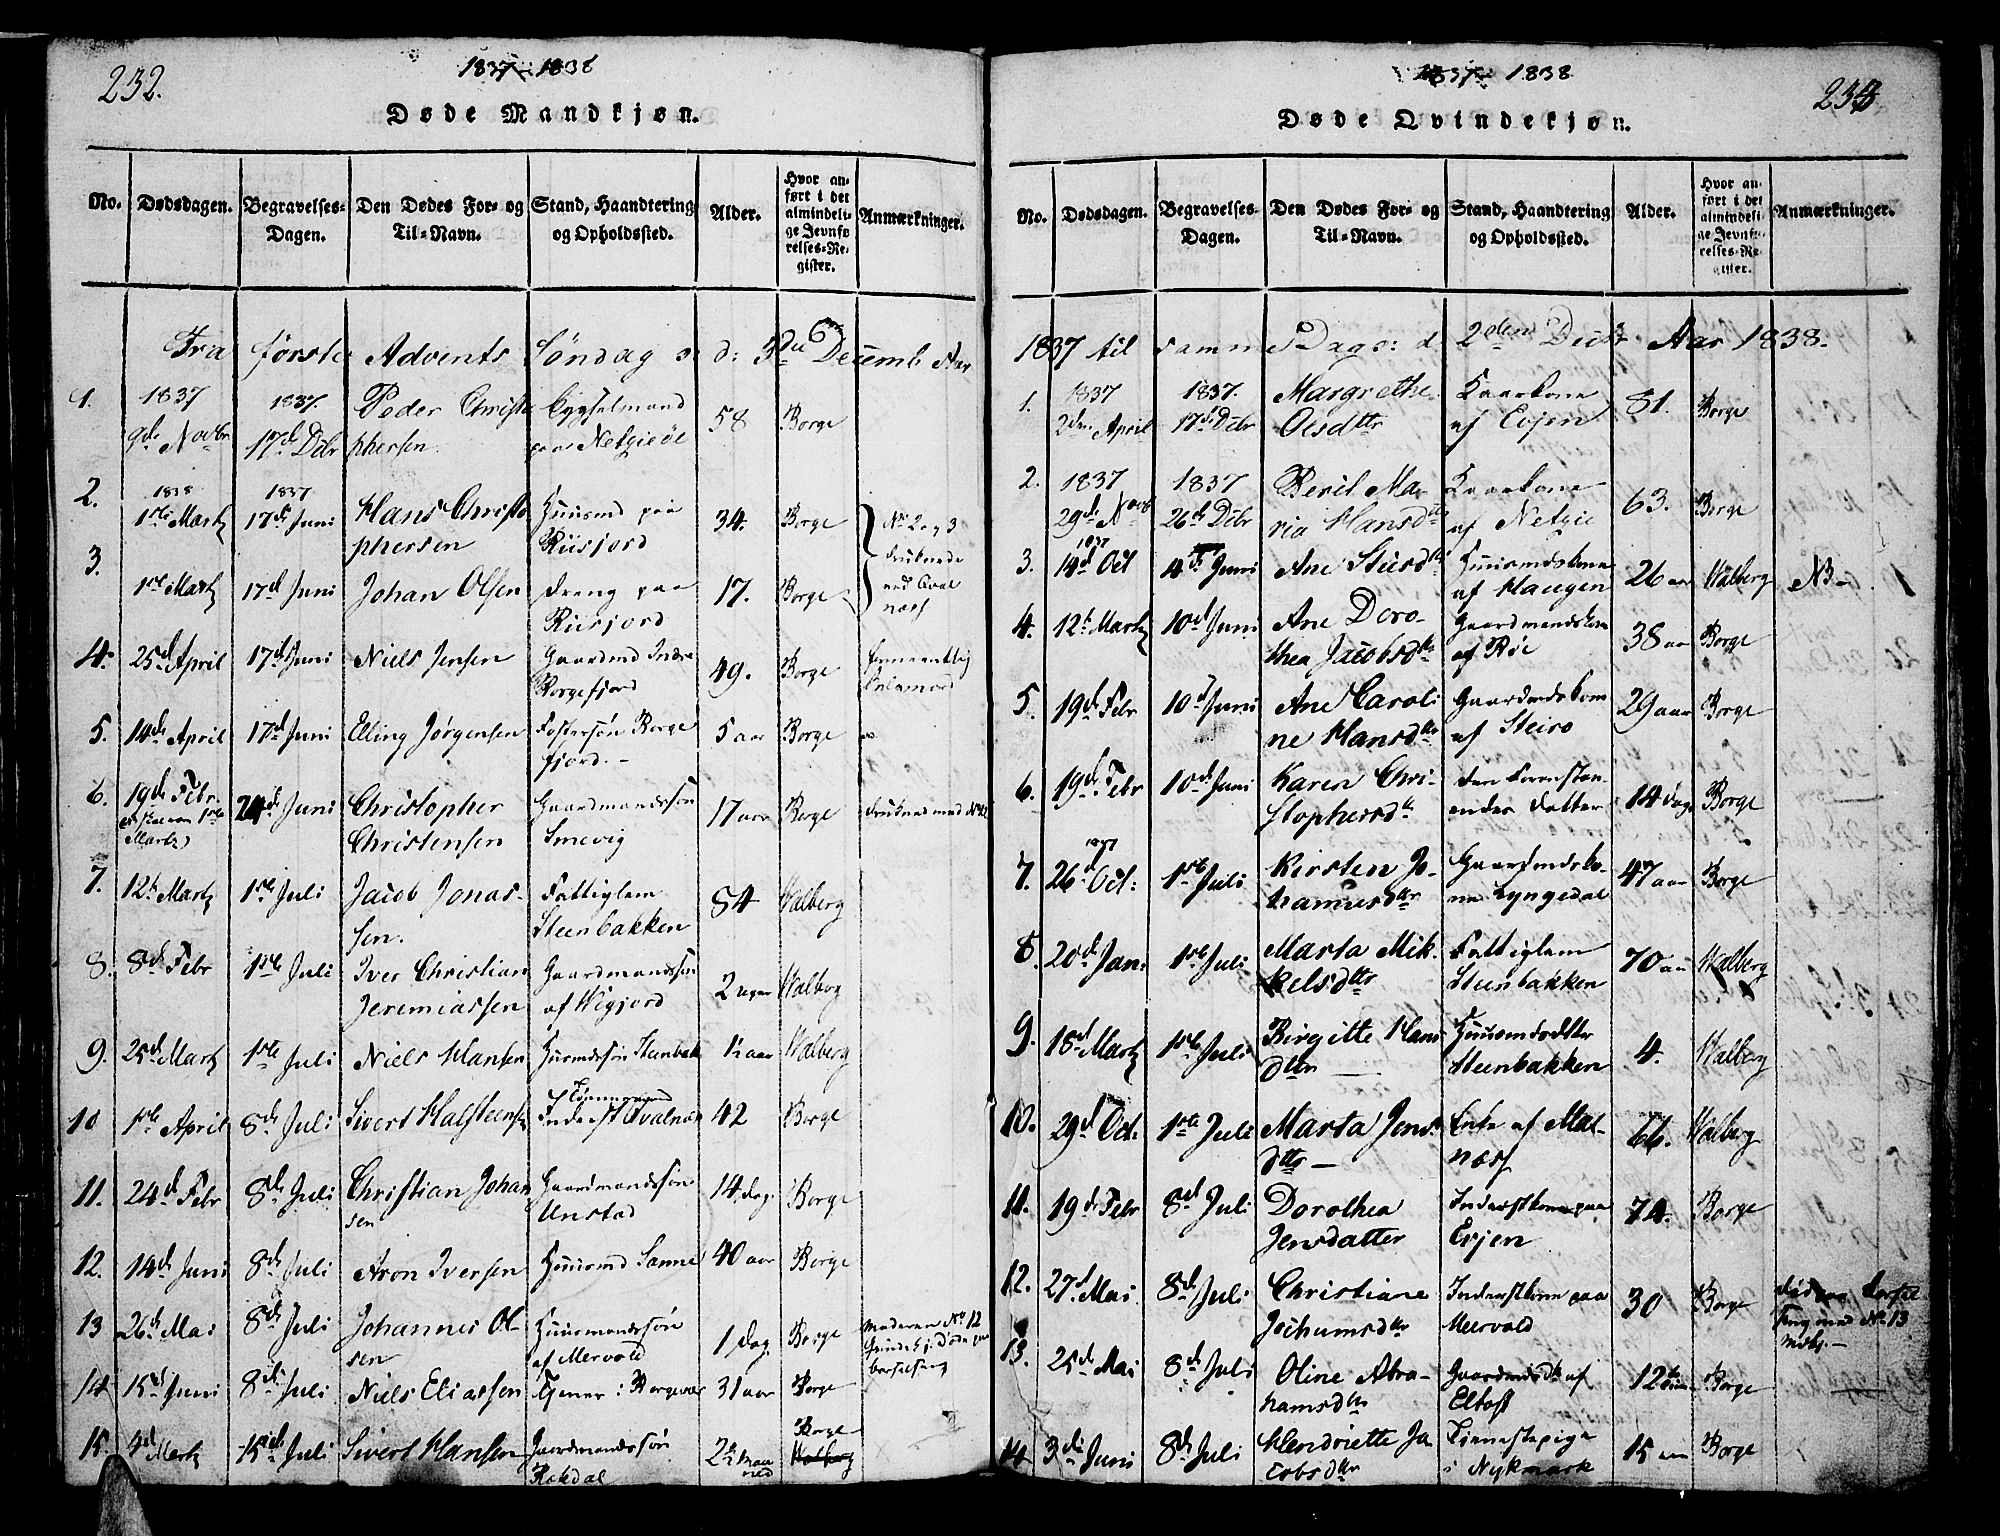 232.
1837–1838
Døde Mandkjøn.
No. Dødsdagen. Begravelses-Dagen. Den Dødes For- og Til-Navn. Stand, Haandtering og Opholdssted. Alder. Hvor anført i det almindelige Jevnførelses-Register. Anmærkninger.
Fra første Advents Søndag d: 3die Decemb. Aar
1. 1837 9de Novbr 1837. 17de Dcbr Peder Christophersen paa Netgieøe 58 Borge
2. 1838 1ste Martz 1837 17de Juni Hans Christophersen Huusmd paa Riisjord 34. Borge No 2 og 3 druknede ved Qvalnæs
3. 1ste Martz 17de Juni Johan Olsen Dreng paa Riisjord 17. Borge
4. 25de April 17de Juni Niels Jensen Gaardmd Indre Borgefjord 49. Borge
5. 14de April 17de Juni Elling Jørgensen Fostersøn Borgefjord. 5 aar Borge
6. 19de Febr. 1ste Martz) 24de Juni Christopher Christensen Gaardmandssøn Smevig 17 aar Borge druknet med No 2
7. 12te Martz 1ste Juli Jacob Jonassen. Fattiglem Steenbakken 84 Walberg
8. 8de Febr 1ste Juli Iver Christian Jeremiassen Gaardmandssøn af Wigjord 2 uger Walberg
9. 25de Martz 1ste Juli Niels Hansen Husmdssøn Steenbak 1½ aar Walberg
10 1ste April 8de Juli Sivert Halsteensen Inderst Qvalnæs 42 Borge
11. 24de Febr 8de Juli Christian Johansen Gaardmandssøn Unstad 14 dag. Borge
12. 14de Juni 8de Juli Aron Iversen Huusmd Sanne 40 aar Borge
13 26de Mai 8de Juli Johannes Olsen Huusmandssøn af Mervold 1 dag. Borge Moderen No 12 Qvindekj. døde paa barselseng
14 15de Juni 8de Juli Niels Eliassen Tjener i Borgevær 31 aar Borge
15. 4de Martz 15de Juli Sivert Hansen Gaardmandssøn Rekdal 2½ Maaned Borge Walberg
1837–1838
233
Døde Qvindekjøn.
No. Dødsdagen. Begravelses-Dagen. Den Dødes For- og Til-Navn. Stand, Haandtering og Opholdssted. Alder. Hvor anført i det almindelige Jevnførelses-Register. Anmærkninger.
1837 til samme Dag: d 2den Decbr Aar 1838.
1. 1837 2den April 1837. 17de Dcbr Margrethe Olsdtr Kaarkone af Evjen 81. Borge
2. 1837 29de Novb 1837 26de Dcbr Beril Maria Hansdtr Kaarkone af Netgie 63. Borge
3. 1837 14de Oct 4de Juni Ane Siursdtr Huusmdskone af Haugen 26 aar Walberg NB
4. 12te Martz 10de Juni Ane Dorothea Jacobsdtr Gaardmandskon af Røe 38 aar Borge
5. 19de Febr 10de Juni Ane Caroline Hansdtr Gaardmdskone af Steiro 29 aar Borge
6. 19de Febr 10de Juni Karen Christophersdtr den Forenstaaendes datter 14 dage Borge
7. 1837 26de Oct: 1ste Juli Kirsten Johannesdtr Gaardmdskone Lyngedal 47 aar Borge
8. 20de Jan: 1ste Juli Marta Mikkelsdtr Fattiglem Steenbakken 70 aar Walberg
9. 18de Martz 1ste Juli Birgitte Hansdtr Huusmdsdtter Steenbakken 4. Walberg
10. 29de Oct. 1ste Juli Marta Jensdtr Enke af Malnæs 66. Walberg
11. 19de Febr 8de Juli Dorothea Jensdatter Inderstkone paa Evjen 74. Borge
12. 27de Mai 8de Juli Christiane Jochumsdtr Inderstkone paa Meervold 30 Borge død paa Barselseng med No 13 Mdkj.
13. 25de Mai 8de Juli Oline Abrahamsdtr Gaardmdsdtr af Eltoft 12 Borge
14 3die Juni 8de Juli Hendriette Jacobsdtr Tienestepige i Nykmark 15 aar Borge